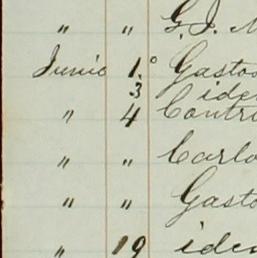 " " G. J.
Junio 1.° Gastos
3 idem
" 4 Contri
" " Carlo
" " Gasto
" 19 idem